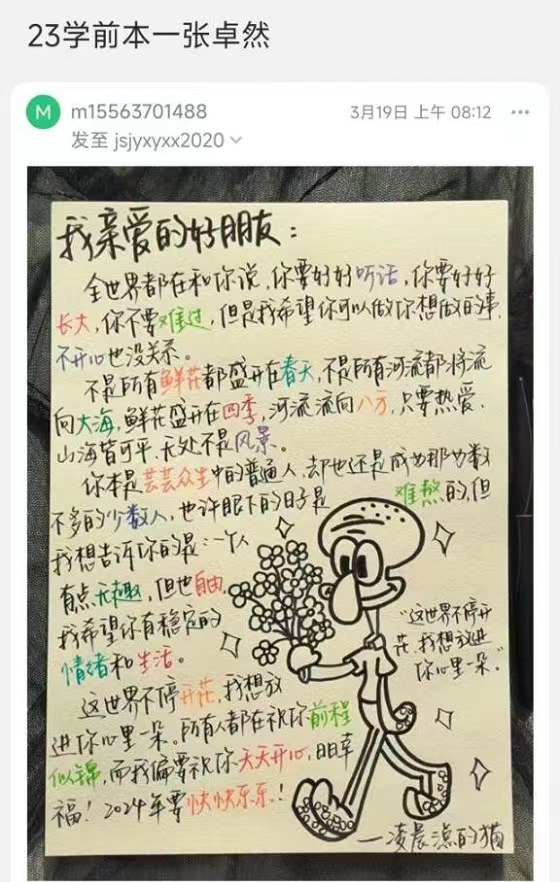 23学前本一张卓然
M
m15563701488
3月19日 上午 08:12
发至 jsjyxyxx2020
我亲爱的好朋友：
全世界都在和你说,你要好好听话,你要好好
长大,你不要难过,但是我希望你可以做你想做的事,
不开心也没关系。
不是所有鲜花都盛开在春天,不是所有河流都将流
向大海,鲜花盛开在四季,河流流向八方,只要热爱,
山海皆可平,无处不是风景。
你本是芸芸众生中的普通人,却也还是成为那为数
不多的少数人,也许眼下的日子是难熬的,但
我想告诉你的是:一个人
有点无趣,但也自由,
我希望你有稳定的
情绪和生活。
这世界不停开花,我想放
进你心里一朵。所有人都在祝你前程
似锦,而我偏要祝你天天开心,日日幸
福！2024年要快快乐乐！
"这世界不停开
花,我想放进
你心里一朵。"
—凌晨凉的猫